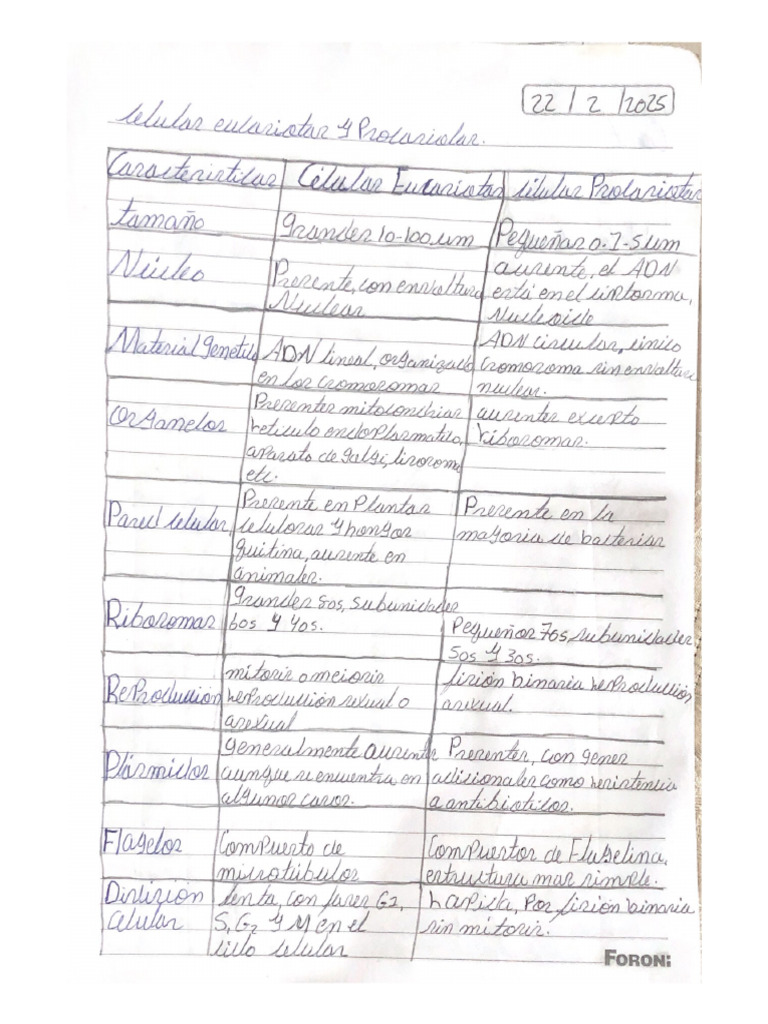 22 / 2 / 2025
Celulas eucariotas y Procariotas.
Caracteristicas Células Eucariotas Células Procariotas
tamaño Grandes 10-100um Pequeñas 0.7-5um
Núcleo Presente, con envoltura Nuclear
ausente, el ADN
está en el citoplasma,
Nucleoide
Material genetico ADN lineal, organizado
en los cromosomas
ADN circular, único
cromosoma sin envoltura
nuclear.
Organelos Presentes mitocondrias
reticulo endoplasmatico,
aparato de golgi, lisosoma
etc.
ausentes excepto
ribosomas.
Pared celular, Presente en Plantas
celulosas y hongos
quitina, ausente en
animales.
Presente en la
mayoria de bacterias
Ribosomas Grandes 80s, subunidades
60s y 40s.
Pequeños 70s, subunidades
50s y 30s.
Reproducción mitosis o meiosis
reproducción sexual o
asexual
fisión binaria reproducción
asexual.
Plásmidos generalmente ausentes
aunque se encuentra en
algunos casos.
Presentes, con genes
adicionales como resistencia
a antibioticos.
Flagelos Compuesto de
microtúbulos
Compuestos de Flagelina,
estructura mas simple.
División
celular
lenta, con fases G1,
S, G2 y M en el
ciclo celular
rapida, Por fisión binaria
sin mitosis.
FORONI